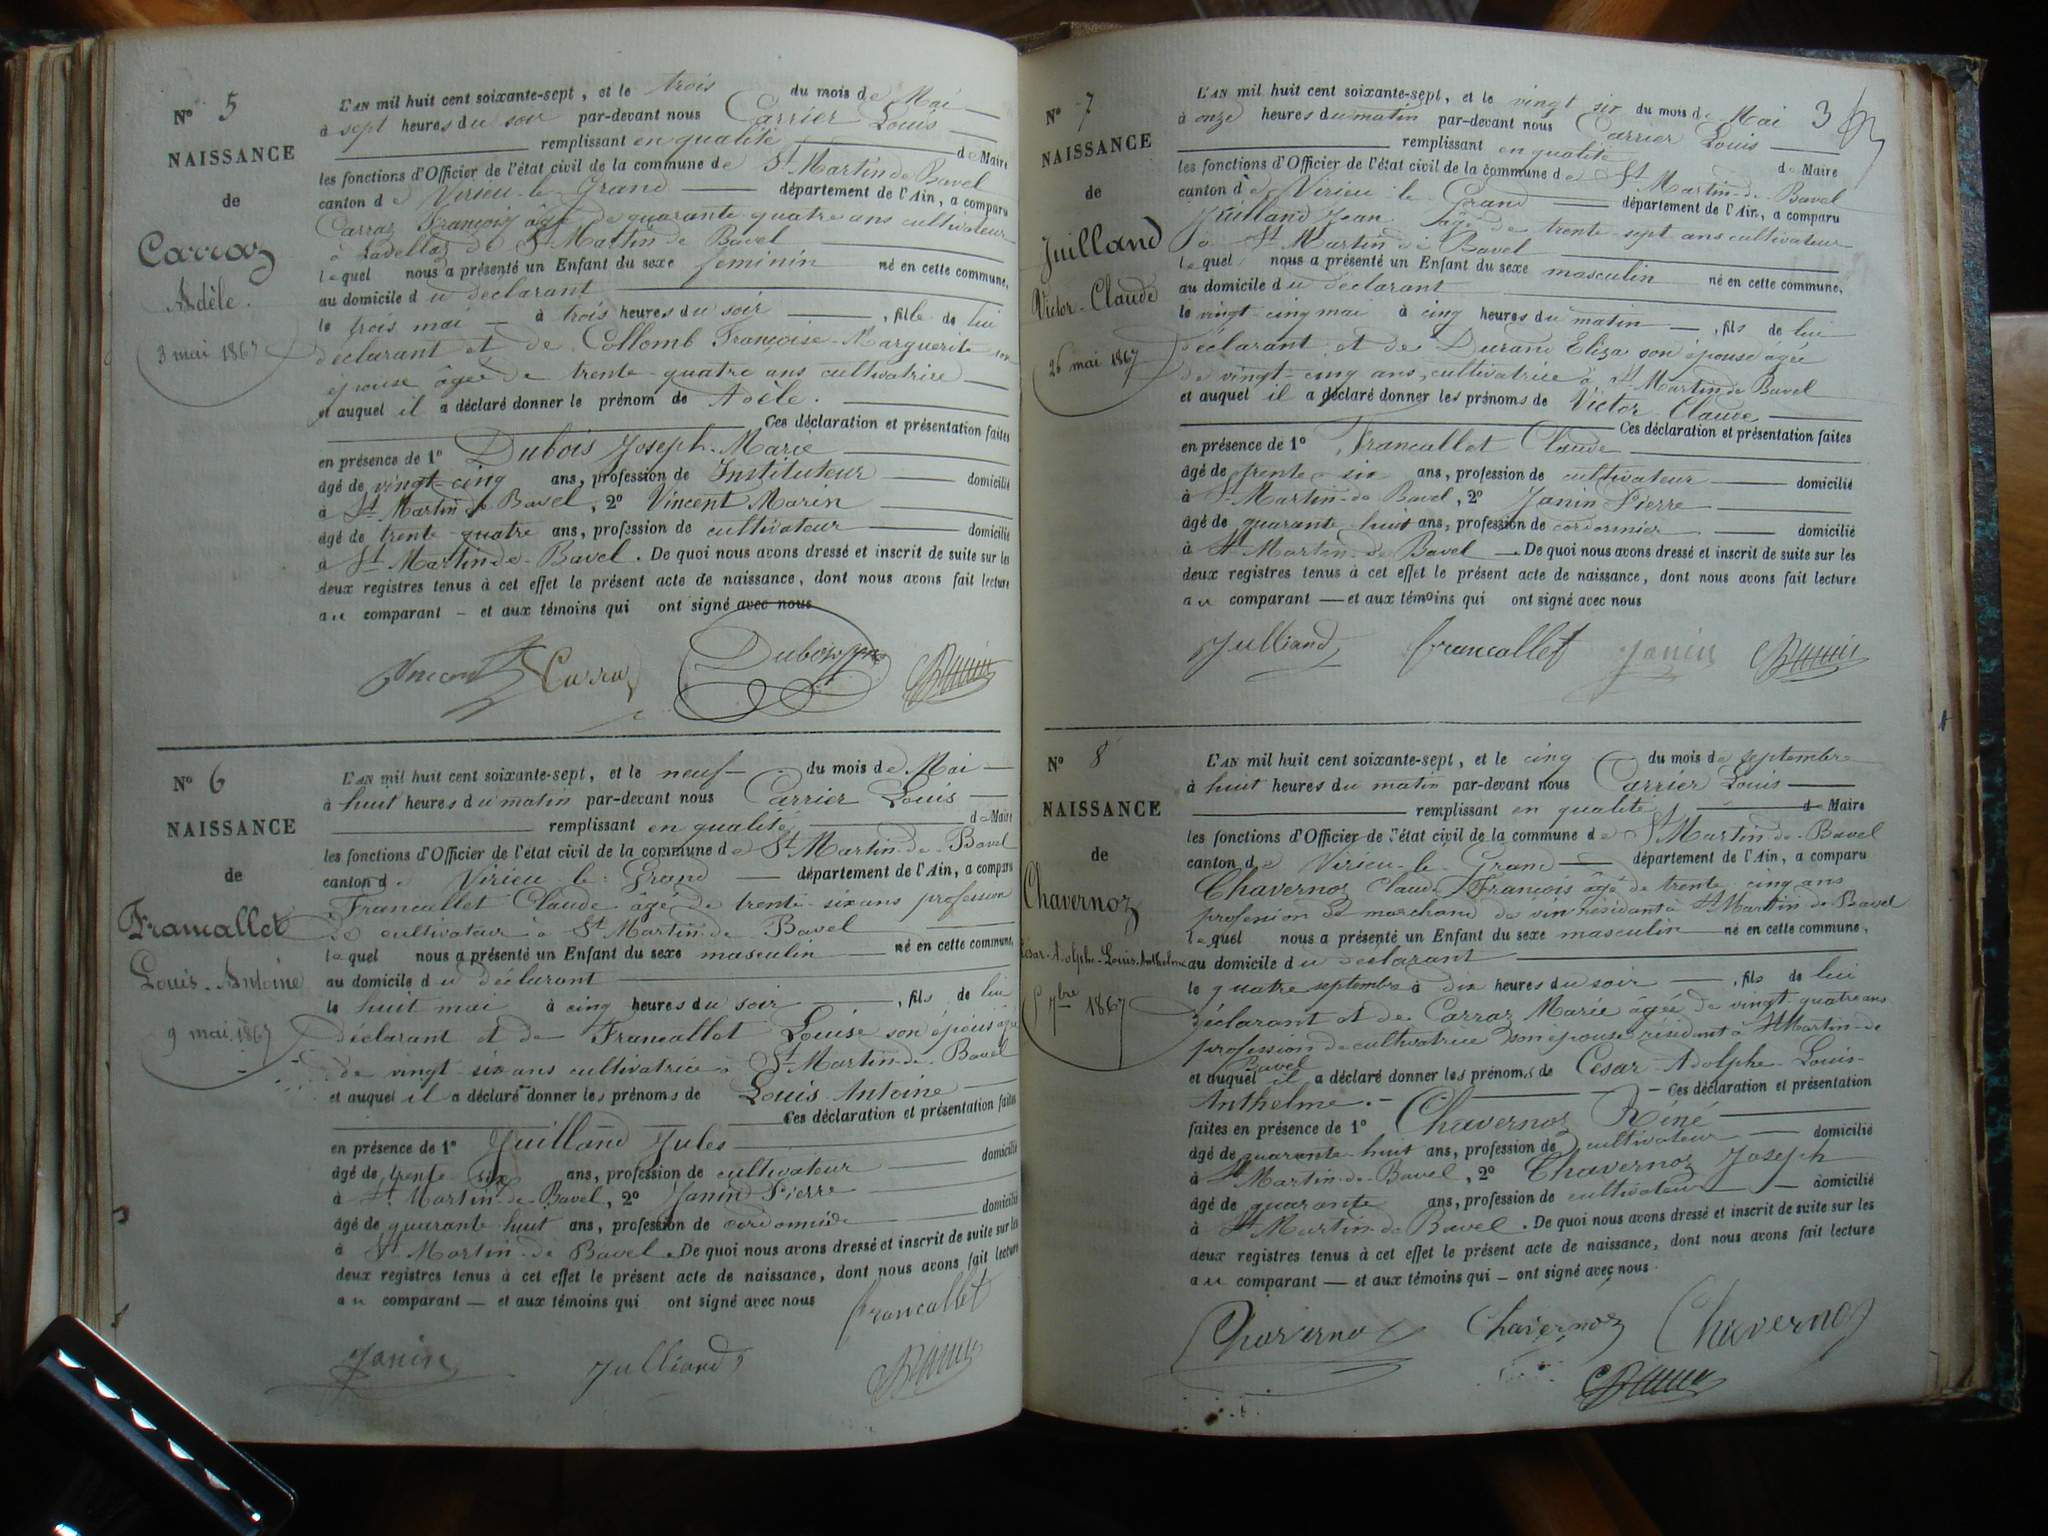 N° 5
NAISSANCE
de
Carraz
Adèle.
3 mai 1867
L'AN mil huit cent soixante-sept, et le trois du mois de Mai
à sept heures du soir par-devant nous Carrier Louis
remplissant en qualité de Maire
les fonctions d'Officier de l'état civil de la commune de St Martin de Bavel
canton de Virieu-le-Grand département de l'Ain, a comparu
Carraz François âgé de quarante quatre ans cultivateur
à de St Martin de Bavel
lequel nous a présenté un Enfant du sexe feminin né en cette commune,
au domicile du déclarant
le trois mai à trois heures du soir, fille de lui
déclarant et de Collomb Françoise-Marguerite son
épouse âgée de trente-quatre ans cultivatrice
et auquel il a déclaré donner le prénom de Adèle.
Ces déclaration et présentation faites
en présence de 1° Dubois Joseph-Marie
âgé de vingt-cinq ans, profession de Instituteur domicilié
à St Martin de Bavel, 2° Vincent Marin
âgé de trente quatre ans, profession de cultivateur domicilié
à St Martin-de-Bavel. De quoi nous avons dressé et inscrit de suite sur les
deux registres tenus à cet effet le présent acte de naissance, dont nous avons fait lecture
au comparant – et aux témoins qui ont signé avec nous
Vincent Carraz Dubois
N° 6
NAISSANCE
de
Francallet
Louis-Antoine
9 mai 1867
L'AN mil huit cent soixante-sept, et le neuf du mois de Mai
à huit heures du matin par-devant nous Carrier Louis
remplissant en qualité de Maire
les fonctions d'Officier de l'état civil de la commune de St Martin-de-Bavel
canton de Virieu-le-Grand département de l'Ain, a comparu
Francallet Claude âgé de trente-six ans profession
de cultivateur à St Martin-de Bavel
lequel nous a présenté un Enfant du sexe masculin né en cette commune,
au domicile du déclarant
le huit mai à cinq heures du soir, fils de lui
déclarant et de Francallet Louise son épouse âgée
de vingt-six ans cultivatrice à St Martin-de-Bavel
et auquel il a déclaré donner les prénoms de Louis Antoine
Ces déclaration et présentation faites
en présence de 1° Juilland Jules
âgé de trente six ans, profession de cultivateur domicilié
à St Martin-de-Bavel, 2° Janin Pierre
âgé de quarante huit ans, profession de cordonnier domicilié
à St Martin-de Bavel. De quoi nous avons dressé et inscrit de suite sur les
deux registres tenus à cet effet le présent acte de naissance, dont nous avons fait lecture
au comparant — et aux témoins qui ont signé avec nous
francallet
Janin Julliand
N° 7
NAISSANCE
de
Juilland
Victor-Claude
26 mai 1867
L'AN mil huit cent soixante-sept, et le vingt six du mois de Mai 3
à onze heures du matin par-devant nous Carrier Louis
remplissant en qualité de Maire
les fonctions d'Officier de l'état civil de la commune de St Martin-de-Bavel
canton de Virieu-le-Grand département de l'Ain, a comparu
Juilland Jean âgé de trente-sept ans cultivateur
à St Martin de Bavel
lequel nous a présenté un Enfant du sexe masculin né en cette commune,
au domicile du déclarant
le vingt-cinq mai à cinq heures du matin —, fils de lui
déclarant et de Durand Eliza son épouse âgée
de vingt-cinq ans, cultivatrice à St Martin de Bavel
et auquel il a déclaré donner les prénoms de Victor Claude
Ces déclaration et présentation faites
en présence de 1° Francallet Claude
âgé de trente-six ans, profession de cultivateur domicilié
à St Martin-de Bavel, 2° Janin Pierre
âgé de quarante huit ans, profession de cordonnier domicilié
à St Martin-de Bavel —. De quoi nous avons dressé et inscrit de suite sur les
deux registres tenus à cet effet le présent acte de naissance, dont nous avons fait lecture
au comparant — et aux témoins qui ont signé avec nous
Julliand francallet Janin
N° 8
NAISSANCE
de
Chavernoz
César-Adolphe-Louis-Anthelme
5 7bre 1867
L'AN mil huit cent soixante-sept, et le cinq du mois de septembre
à huit heures du matin par-devant nous Carrier Louis
remplissant en qualité de Maire
les fonctions d'Officier de l'état civil de la commune de St Martin-de-Bavel
canton de Virieu-le-Grand département de l'Ain, a comparu
Chavernoz Claude François âgé de trente cinq ans
profession de marchand de vin résidant à St Martin de Bavel
lequel nous a présenté un Enfant du sexe masculin né en cette commune,
au domicile du déclarant
le quatre septembre à dix heures du soir, fils de lui
déclarant et de Carraz Marie âgée de vingt-quatre ans
profession de cultivatrice son épouse résidant à St Martin-de
Bavel
et auquel il a déclaré donner les prénoms de César-Adolphe-Louis-
Anthelme. — Ces déclaration et présentation
faites en présence de 1° Chavernoz Réné
âgé de quarante-huit ans, profession de cultivateur domicilié
à St Martin-de-Bavel, 2° Chavernoz Joseph
âgé de quarante ans, profession de cultivateur domicilié
à St Martin de Bavel. De quoi nous avons dressé et inscrit de suite sur les
deux registres tenus à cet effet le présent acte de naissance, dont nous avons fait lecture
au comparant — et aux témoins qui – ont signé avec nous.
Chavernoz Chavernoz Chavernoz